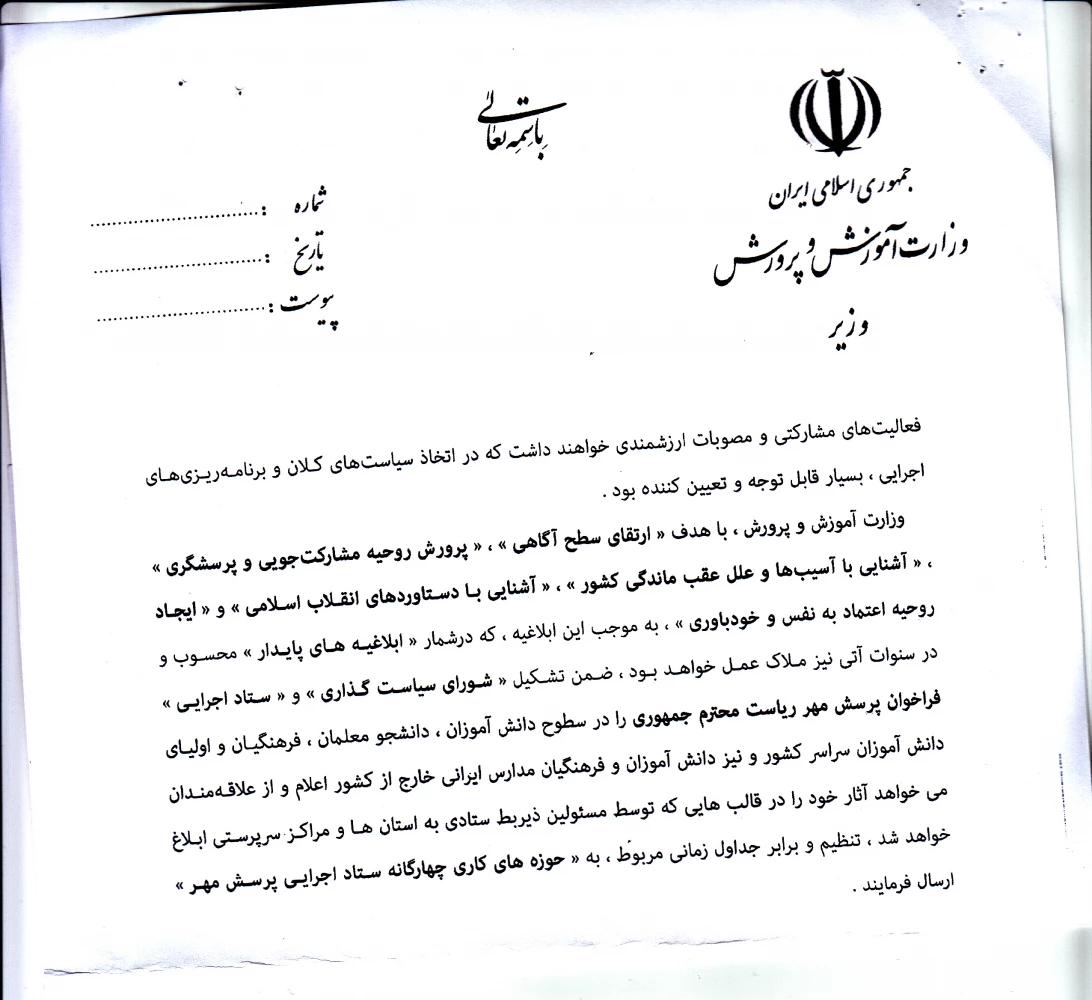 باسمه تعالی
جمهوری اسلامی ایران
وزارت آموزش و پرورش
وزیر
شماره : ..............................
تاریخ : ..............................
پیوست : ..............................
فعالیت‌های مشارکتی و مصوبات ارزشمندی خواهند داشت که در اتخاذ سیاست‌های کلان و برنامه‌ریزی‌های
اجرایی ، بسیار قابل توجه و تعیین کننده بود .
وزارت آموزش و پرورش ، با هدف « ارتقای سطح آگاهی » ، « پرورش روحیه مشارکت‌جویی و پرسشگری »
، « آشنایی با آسیب‌ها و علل عقب ماندگی کشور » ، « آشنایی با دستاوردهای انقلاب اسلامی » و « ایجاد
روحیه اعتماد به نفس و خودباوری » ، به موجب این ابلاغیه ، که درشمار « ابلاغیه های پایدار » محسوب و
در سنوات آتی نیز ملاک عمل خواهد بود ، ضمن تشکیل « شورای سیاست گذاری » و « ستاد اجرایی »
فراخوان پرسش مهر ریاست محترم جمهوری را در سطوح دانش آموزان ، دانشجو معلمان ، فرهنگیان و اولیای
دانش آموزان سراسر کشور و نیز دانش آموزان و فرهنگیان مدارس ایرانی خارج از کشور اعلام و از علاقه‌مندان
می خواهد آثار خود را در قالب هایی که توسط مسئولین ذیربط ستادی به استان ها و مراکز سرپرستی ابلاغ
خواهد شد ، تنظیم و برابر جداول زمانی مربوط ، به « حوزه های کاری چهارگانه ستاد اجرایی پرسش مهر »
ارسال فرمایند .